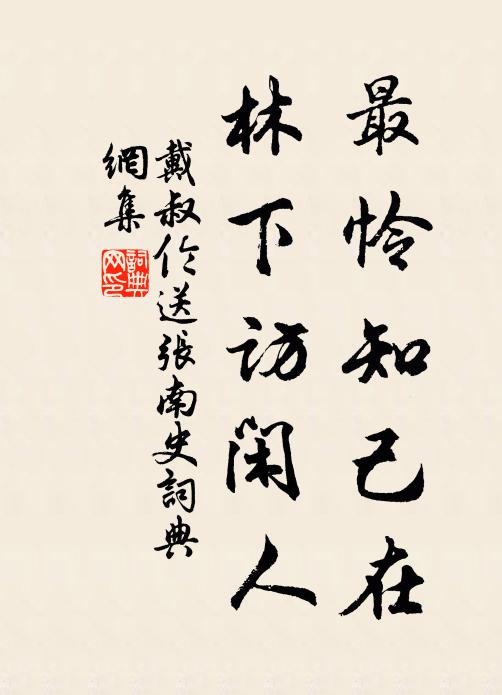 最怜知己在
林下访闲人
戴叔伦送張南史詞典
網集
詞典网印